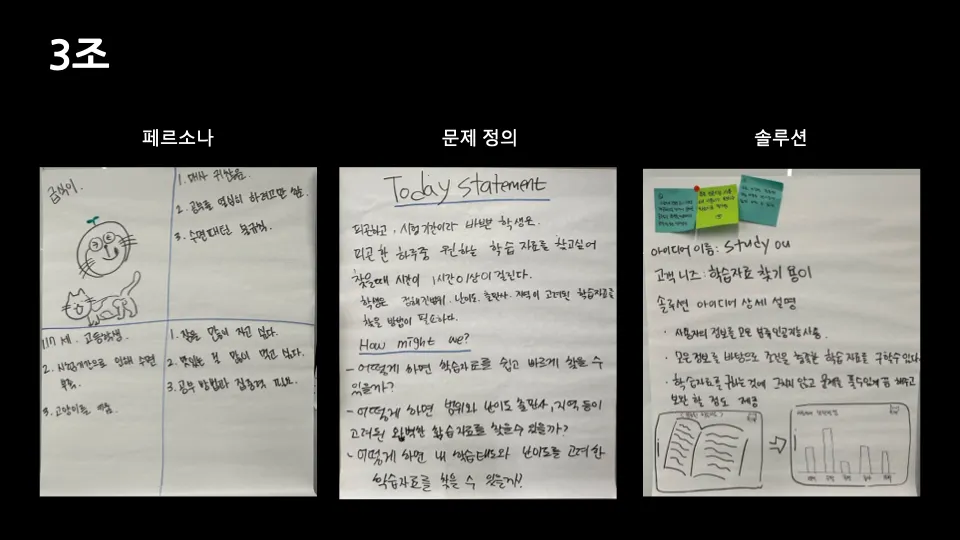 3조
페르소나
문제 정의
솔루션
1. 매사 귀찮음.
2. 공부를 열심히 하려고만 함.
3. 수면패턴 불규칙.
1. 17세. 고등학생
2. 시험기간으로 인해 수면
부족.
3. 고양이를 키움.
1. 잠을 많이 자고 싶다.
2. 맛있는 걸 많이 먹고 싶다.
3. 공부 방법과 집중력 필요.
Today statement
피곤하고, 시험기간이라 바쁜 학생은.
피곤한 하루중 원하는 학습 자료를 찾고싶어
찾을때 시간이 1시간이상이 걸린다.
학생은 정해진범위. 난이도. 출판사. 지역이 고려된 학습자료를
찾을 방법이 필요하다.
How might we?
- 어떻게 하면 학습자료를 쉽고 빠르게 찾을 수
있을까?
- 어떻게 하면 범위와 난이도 출판사, 지역 등이
고려된 완벽한 학습자료를 찾을수 있을까?
- 어떻게 하면 내 학습태도와 난이도를 고려한
학습자료를 찾을 수 있을까?
아이디어 이름: study ou
고객 니즈: 학습자료 찾기 용이
솔루션 아이디어 상세 설명
· 사용자의 정보를 모은
사용
· 모은정보를 바탕으로 조건을 충족한 학습 자료를 구할수 있다
· 학습자료를 구하는것에 그치지 않고 문제를 풀수있게끔 해주고
보완 할 점도 제공